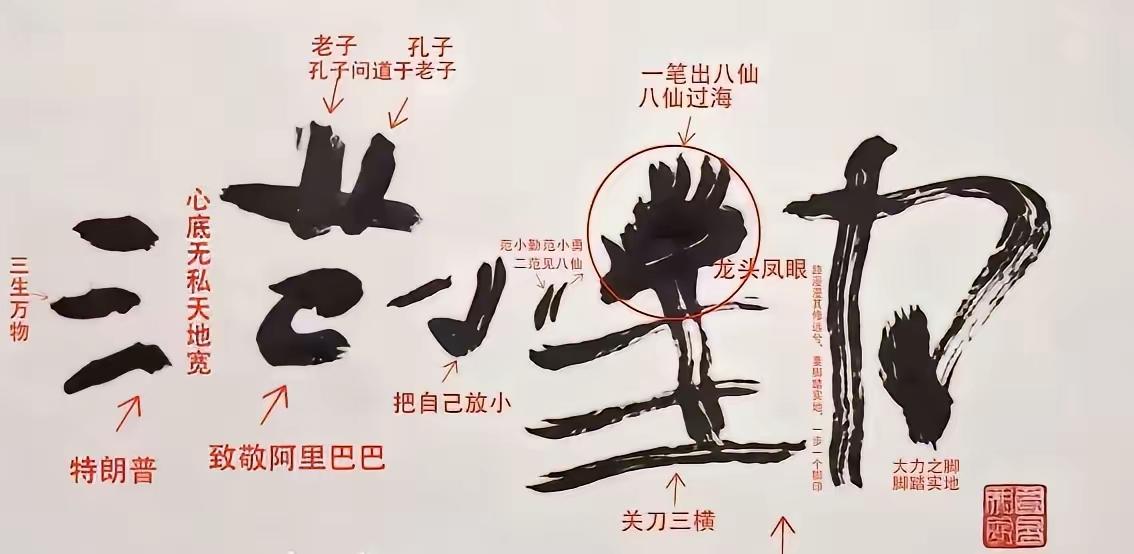 老子 孔子
孔子问道于老子
一笔出八仙
八仙过海
三生万物
心底无私天地宽
范小勤范小勇
二范见八仙
龙头凤眼
路漫漫其修远兮，要脚踏实地，一步一个脚印
范小勤
把自己放小
特朗普
致敬阿里巴巴
关刀三横
大力之脚
脚踏实地